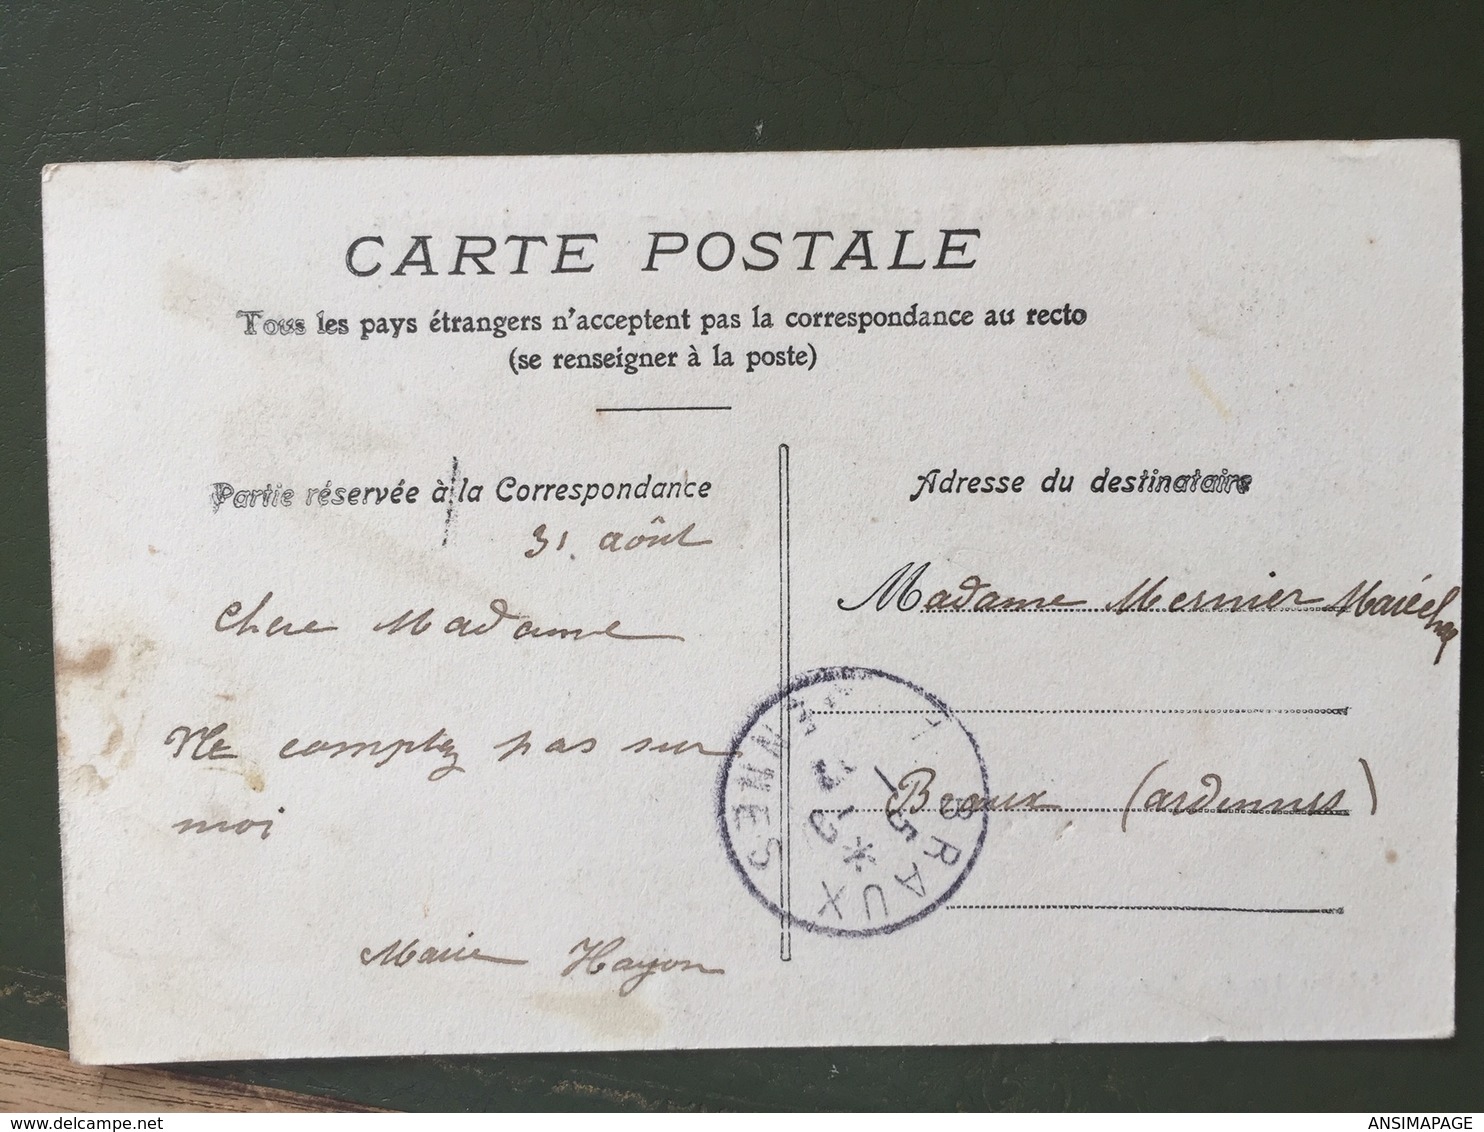 CARTE POSTALE
Tous les pays étrangers n'acceptent pas la correspondance au recto
(se renseigner à la poste)
Partie réservée à la Correspondance
31 août
Chere Madame
Ne comptez pas sur
moi
Marie Hayon
Adresse du destinataire
Madame Mernier Maréchal
Beaux (ardennes)
BRAUX
delcampe.net
ANSIMAPAGE